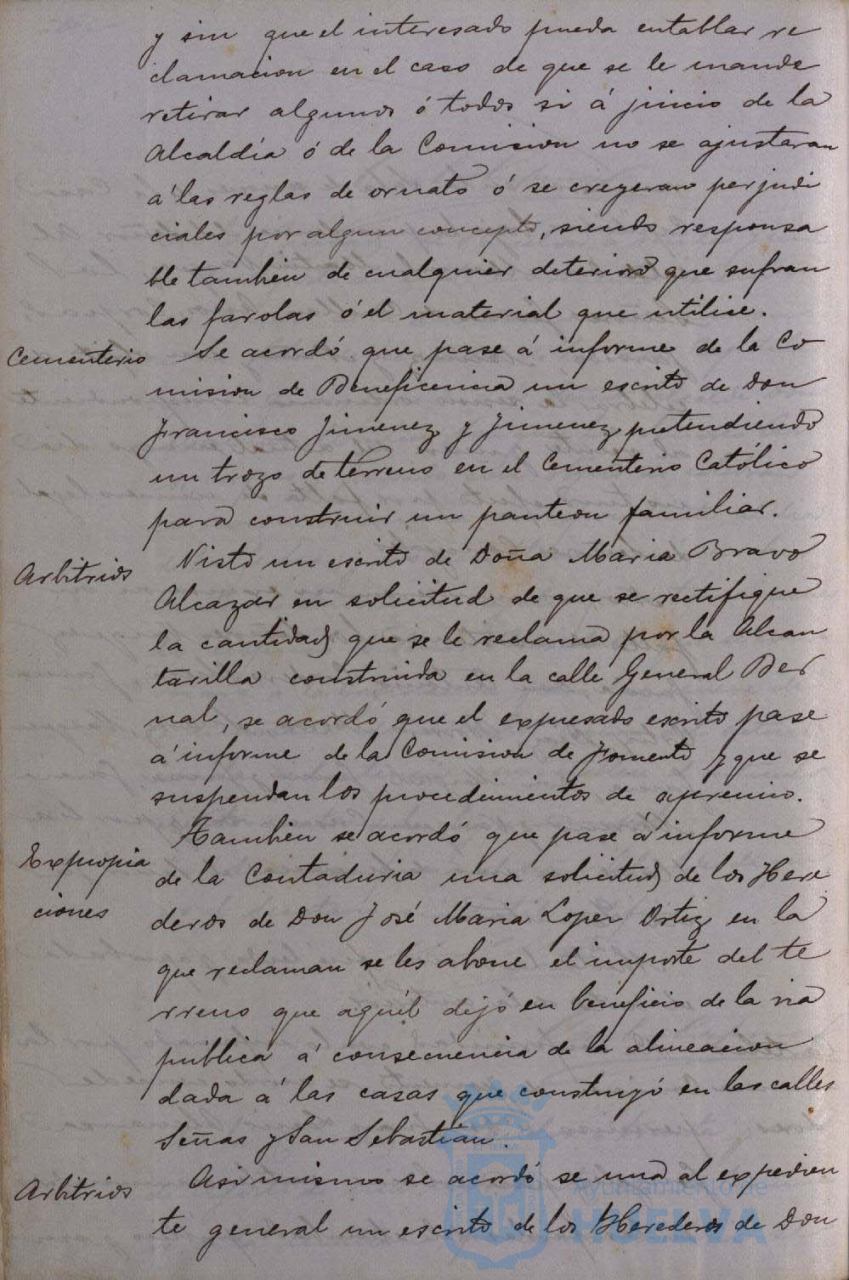 y sin que el interesado pueda entablar re
clamacion en el caso de que se le mande
retirar algunos ó todos si á juicio de la
Alcaldía ó de la Comision no se ajustaran
á las reglas de ornato ó se creyeran perjudi
ciales por algun concepto, siendo responsa
ble tambien de cualquier deterioro que sufran
las farolas ó el material que utilice.
Cementerio Se acordó que pase á informe de la Co
mision de Beneficencia un escrito de Don
Francisco Jimenez y Jimenez pretendiendo
un trozo de terreno en el Cementerio Católico
para construir un panteon familiar.
Arbitrios Visto un escrito de Doña Maria Bravo
Alcazar en solicitud de que se rectifique
la cantidad que se le reclama por la Alcan
tarilla construida en la calle General Ber
nal, se acordó que el expresado escrito pase
á informe de la Comision de Fomento y que se
suspendan los procedimientos de apremio.
Expropia Tambien se acordó que pase á informe
ciones de la Contaduria una solicitud de los Here
deros de Don José Maria Lopez Ortiz en la
que reclaman se les abone el importe del te
rreno que aquél dejó en beneficio de la via
pública á consecuencia de la alineacion
dada á las casas que construyó en las calles
Señas y San Sebastián.
Arbitrios Asi mismo se acordó se una al expedien
te general un escrito de los Herederos de Don
Ayuntamiento de
HUELVA